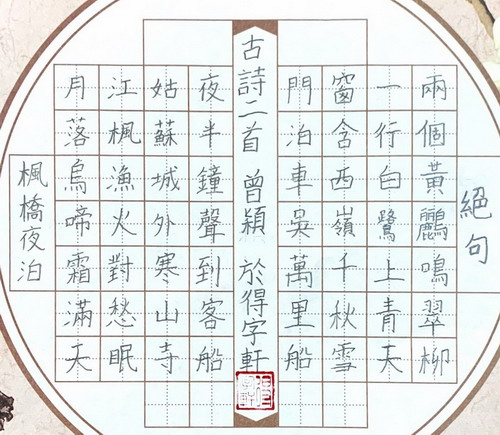 絕句
兩個黃鸝鳴翠柳
一行白鷺上青天
窗含西嶺千秋雪
門泊車吳萬里船
古詩二首 曾穎 於得字軒
楓橋夜泊
月落烏啼霜滿天
江楓漁火對愁眠
姑蘇城外寒山寺
夜半鐘聲到客船